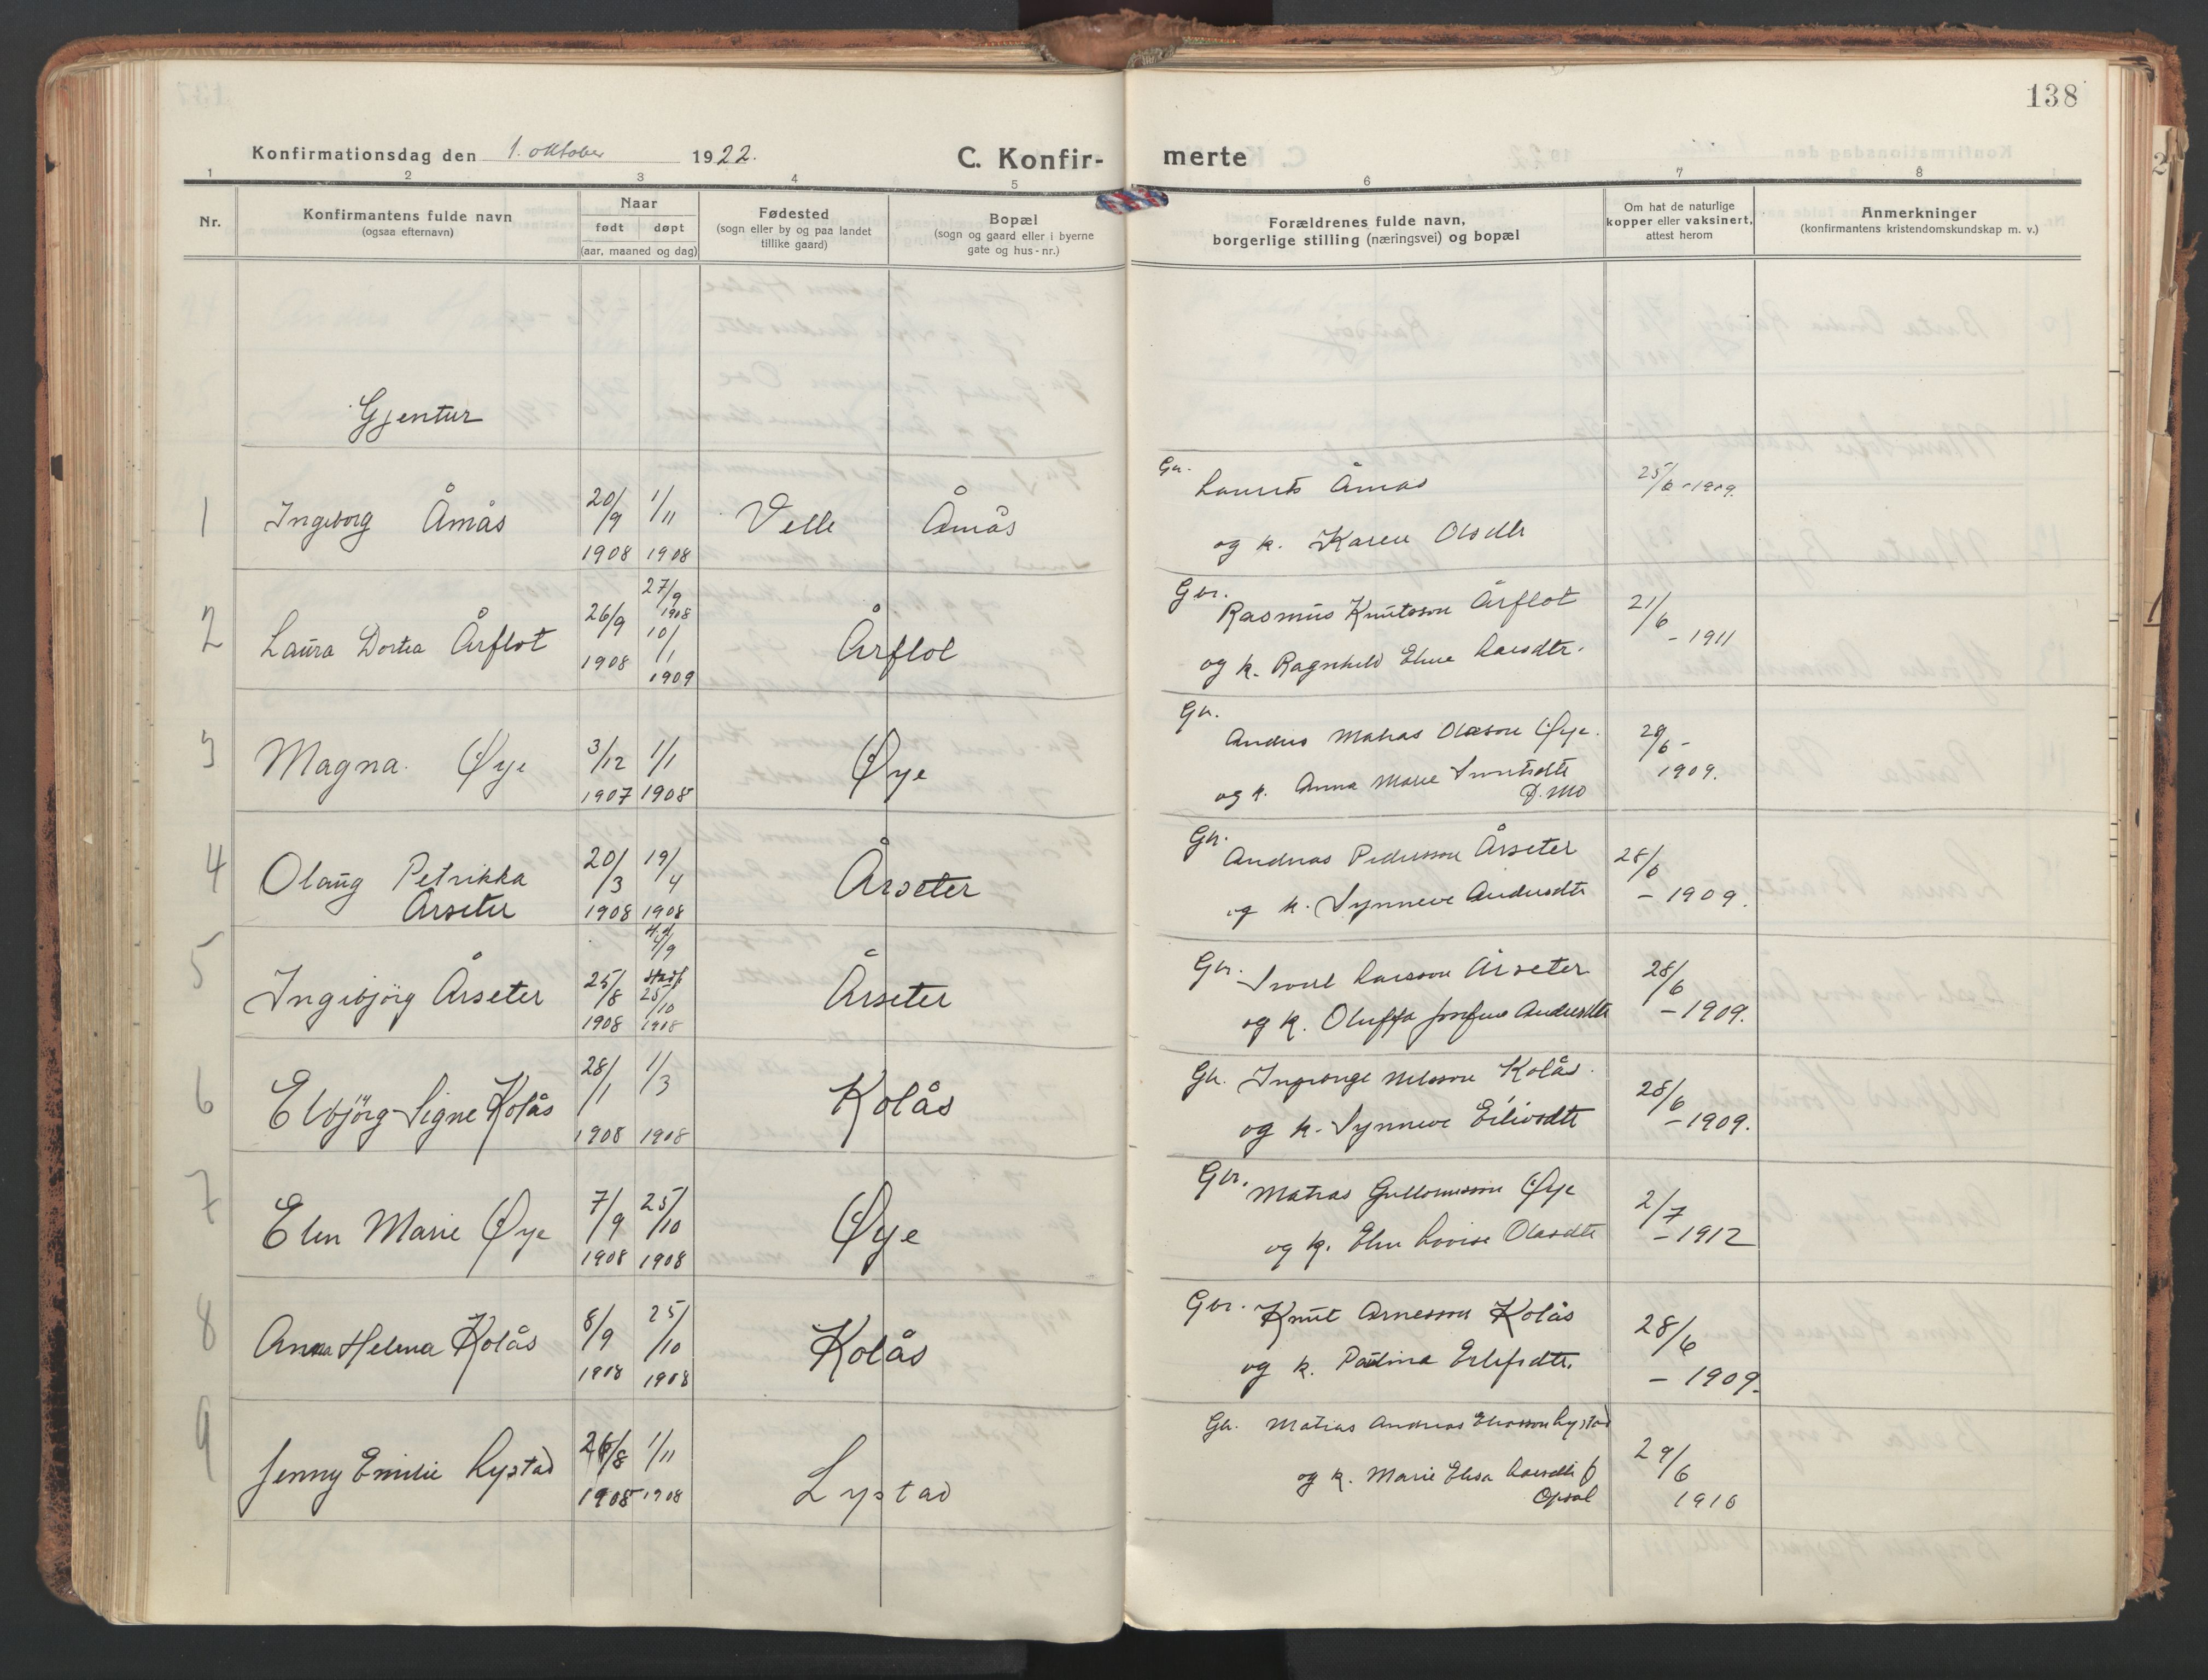 138
Konfirmationsdag den 1. oktober 1922.
C. Konfir-
merte
1 2 3 4 5 6 7 8
Nr.
Konfirmantens fulde navn
(ogsaa efternavn)
Naar
født døpt
(aar, maaned og dag)
Fødested
(sogn eller by og paa landet
tillike gaard)
Bopæl
(sogn og gaard eller i byerne
gate og hus-nr.)
Forældrenes fulde navn,
borgerlige stilling (næringsvei) og bopæl
Om hat de naturlige
kopper eller vaksinert,
attest herom
Anmerkninger
(konfirmantens kristendomskundskap m. v.)
Gjentur
1 Ingeborg Åmås 20/9 1908 1/11 1908 Velle Åmås
Gbr. Laurits Åmås 25/6-1909.
og k. Karen Olsdtr
2 Laura Dortea Årflot 26/9 1908 27/9 1908 10/1 1909 Årflot
Gbr. Rasmus Knutsson Årflot 21/6 - 1911
og k. Ragnhild Eline Larsdtr.
3 Magna. Øye 3/12 1907 1/1 1908 Øye
Gbr. Anders Matias Olason Øye. 29/6 - 1909.
og k. Anna Marie Sivertsdtr
f. Mo
4 Olaug Petrikka 20/3 1908 19/4 1908 Årseter
Årseter
Gbr. Andreas Pedersson Årseter 28/6 - 1909.
og k. Synneve Andersdtr
5 Ingebjörg Årseter 25/8 1908 h.d. 4/9 stadf 25/10 1908 Årseter
Gbr. Sivert Larsson Årseter 28/6 - 1909.
og k. Oluffa Josefine Andersdtr
6 Elbjörg Signe Kolås 28/1 1908 1/3 1908 Kolås
Gbr. Ingebrigt Nilsson Kolås. 28/6 - 1909.
og k. Synneve Eilivsdtr
7 Elen Marie Øye 7/9 1908 25/10 1908 Øye
Gbr. Matias Guttormsson Øye 2/7 - 1912
og k. Eline Lovise Olasdtr
8 Anna Helena Kolås 8/9 1908 25/10 1908 Kolås
Gbr. Knut Arnesson Kolås 28/6 - 1909.
og k. Paulina Eilifsdtr.
9 Jenny Emilie Lystad 26/8 1908 1/11 1908 Lystad
Gbr. Matias Andreas Eliasson Lystad 29/6 1910
og k. Marie Elisa Larsdtr f.
Opsal